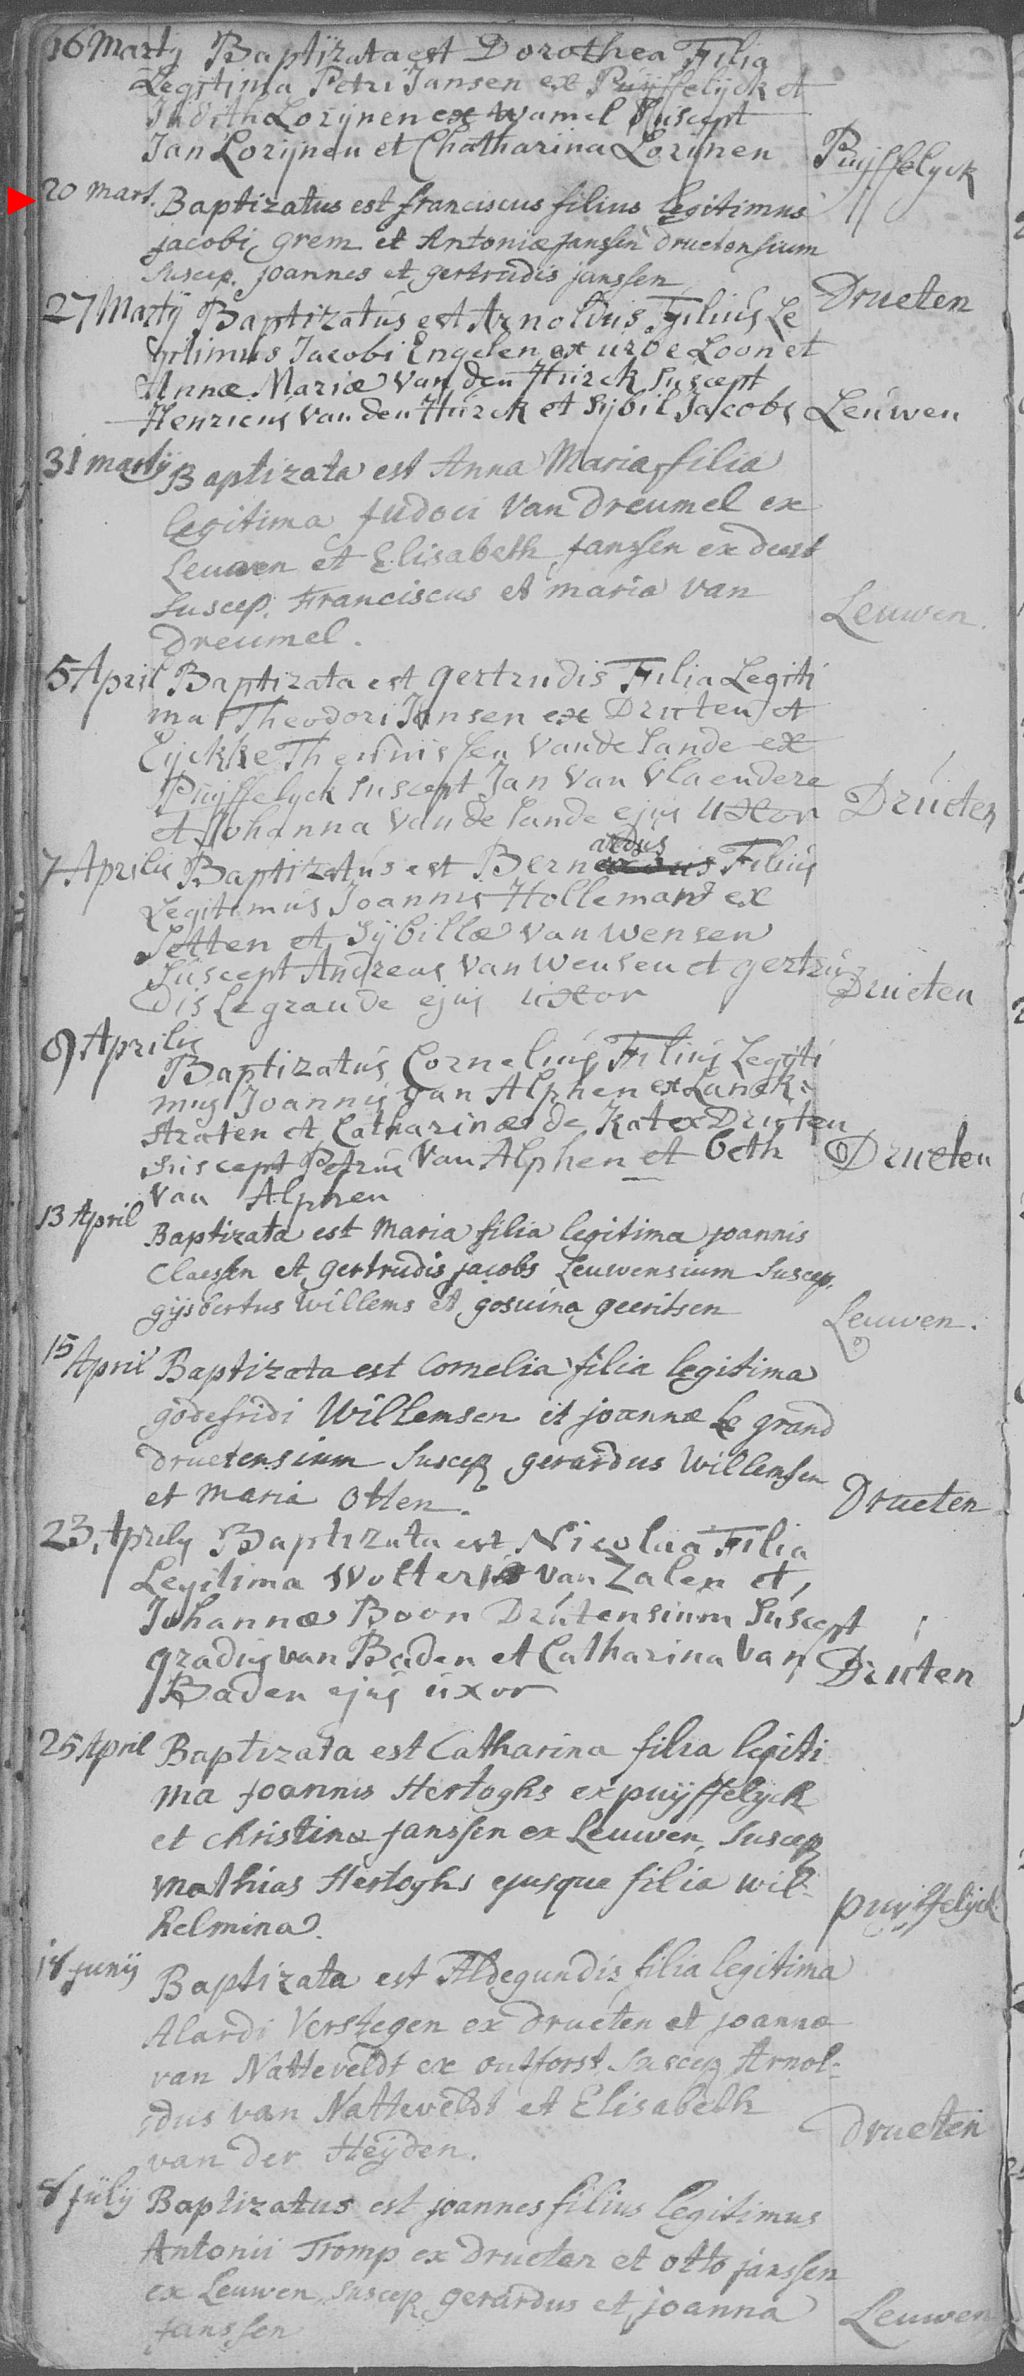 16 Martij Baptizata est Dorothea Filia
Legitima Petri Jansen ex Puijffelijck et
Judith Lorijnen ex wamel Suscept
Jan Lorijnen et Chatharina Lorijnen Puijffelijck
20 mart. Baptizatus est franciscus filius legitimus
jacobi grem et Antoniæ janssen druetensium
suscep. joannes et gertrudis janssen Drueten
27 Martij Baptizatus est Arnoldus Filius Le
gitimus Jacobi Engelen ex urbe Loon et
Annæ Mariæ van den Hurck suscept
Henricus van den Hurck et Sijbil Jacobs Leuwen
31 martij Baptizata est Anna Maria filia
legitima judoci van dreumel ex
Leuwen et Elisabeth janssen ex deest
suscep. Franciscus et maria van
dreumel. Leuwen.
5 April Baptizata est gertrudis Filia Legiti
ma Theodori Jansen ex Druten et
Eijckke Theunissen van de Sande ex
Puijffelijck suscept Jan van Vlaendere
et Johanna van de Sande ejus uxor Druten
7 Aprilis Baptizatus est Bernardus Filius
Legitimus Joannis Hollemant ex
Setten et Sijbillæ van wensen
Suscept Andreas van Wensen et gertru
dis Legrande ejus uxor Drueten
9 Aprilis
Baptizatus Cornelius Filius Legiti
mus Joannis van Alphen ex Lanck
straten et Catharinæ de Kat ex Druten
suscept Petrus van Alphen et beth Drueten
van Alphen
13 April
Baptizata est Maria filia legitima joannis
Claessen et gertrudis jacobs Leuwensium suscep.
gijsbertus willems et gosuina geeritsen Leuwen.
15 April Baptizata est Cornelia filia legitima
godefridi Willemsen et joannæ Le grand
druetensium suscep gerardus Willemsen
et Maria Otten. Drueten
23 Aprilij Baptizata est Nicolaa Filia
Legitima Wolteri van Zalen et
Johannæ Boon Drutensium Suscept
gradus van Baden et Catharina Van Druten
Baden ejus uxor
25 April Baptizata est Catharina filia legiti
ma joannis Hertoghs ex puijffelijck
et christinæ janssen ex Leuwen, suscep
mathias Hertoghs ejusque filia wil-
helmina. puijffelijck
18 junij Baptizata est Aldegundis filia legitima
Alardi Verstegen ex drueten et joannæ
van Natteveldt ex outforst suscep Arnol-
dus van Natteveldt et Elisabeth
van der Heijden. drueten
8 julij Baptizatus est joannes filius legitimus
Antonii Tromp ex drueten et otto janssen
ex Leuwen, suscep gerardus et joanna
janssen Leuwen